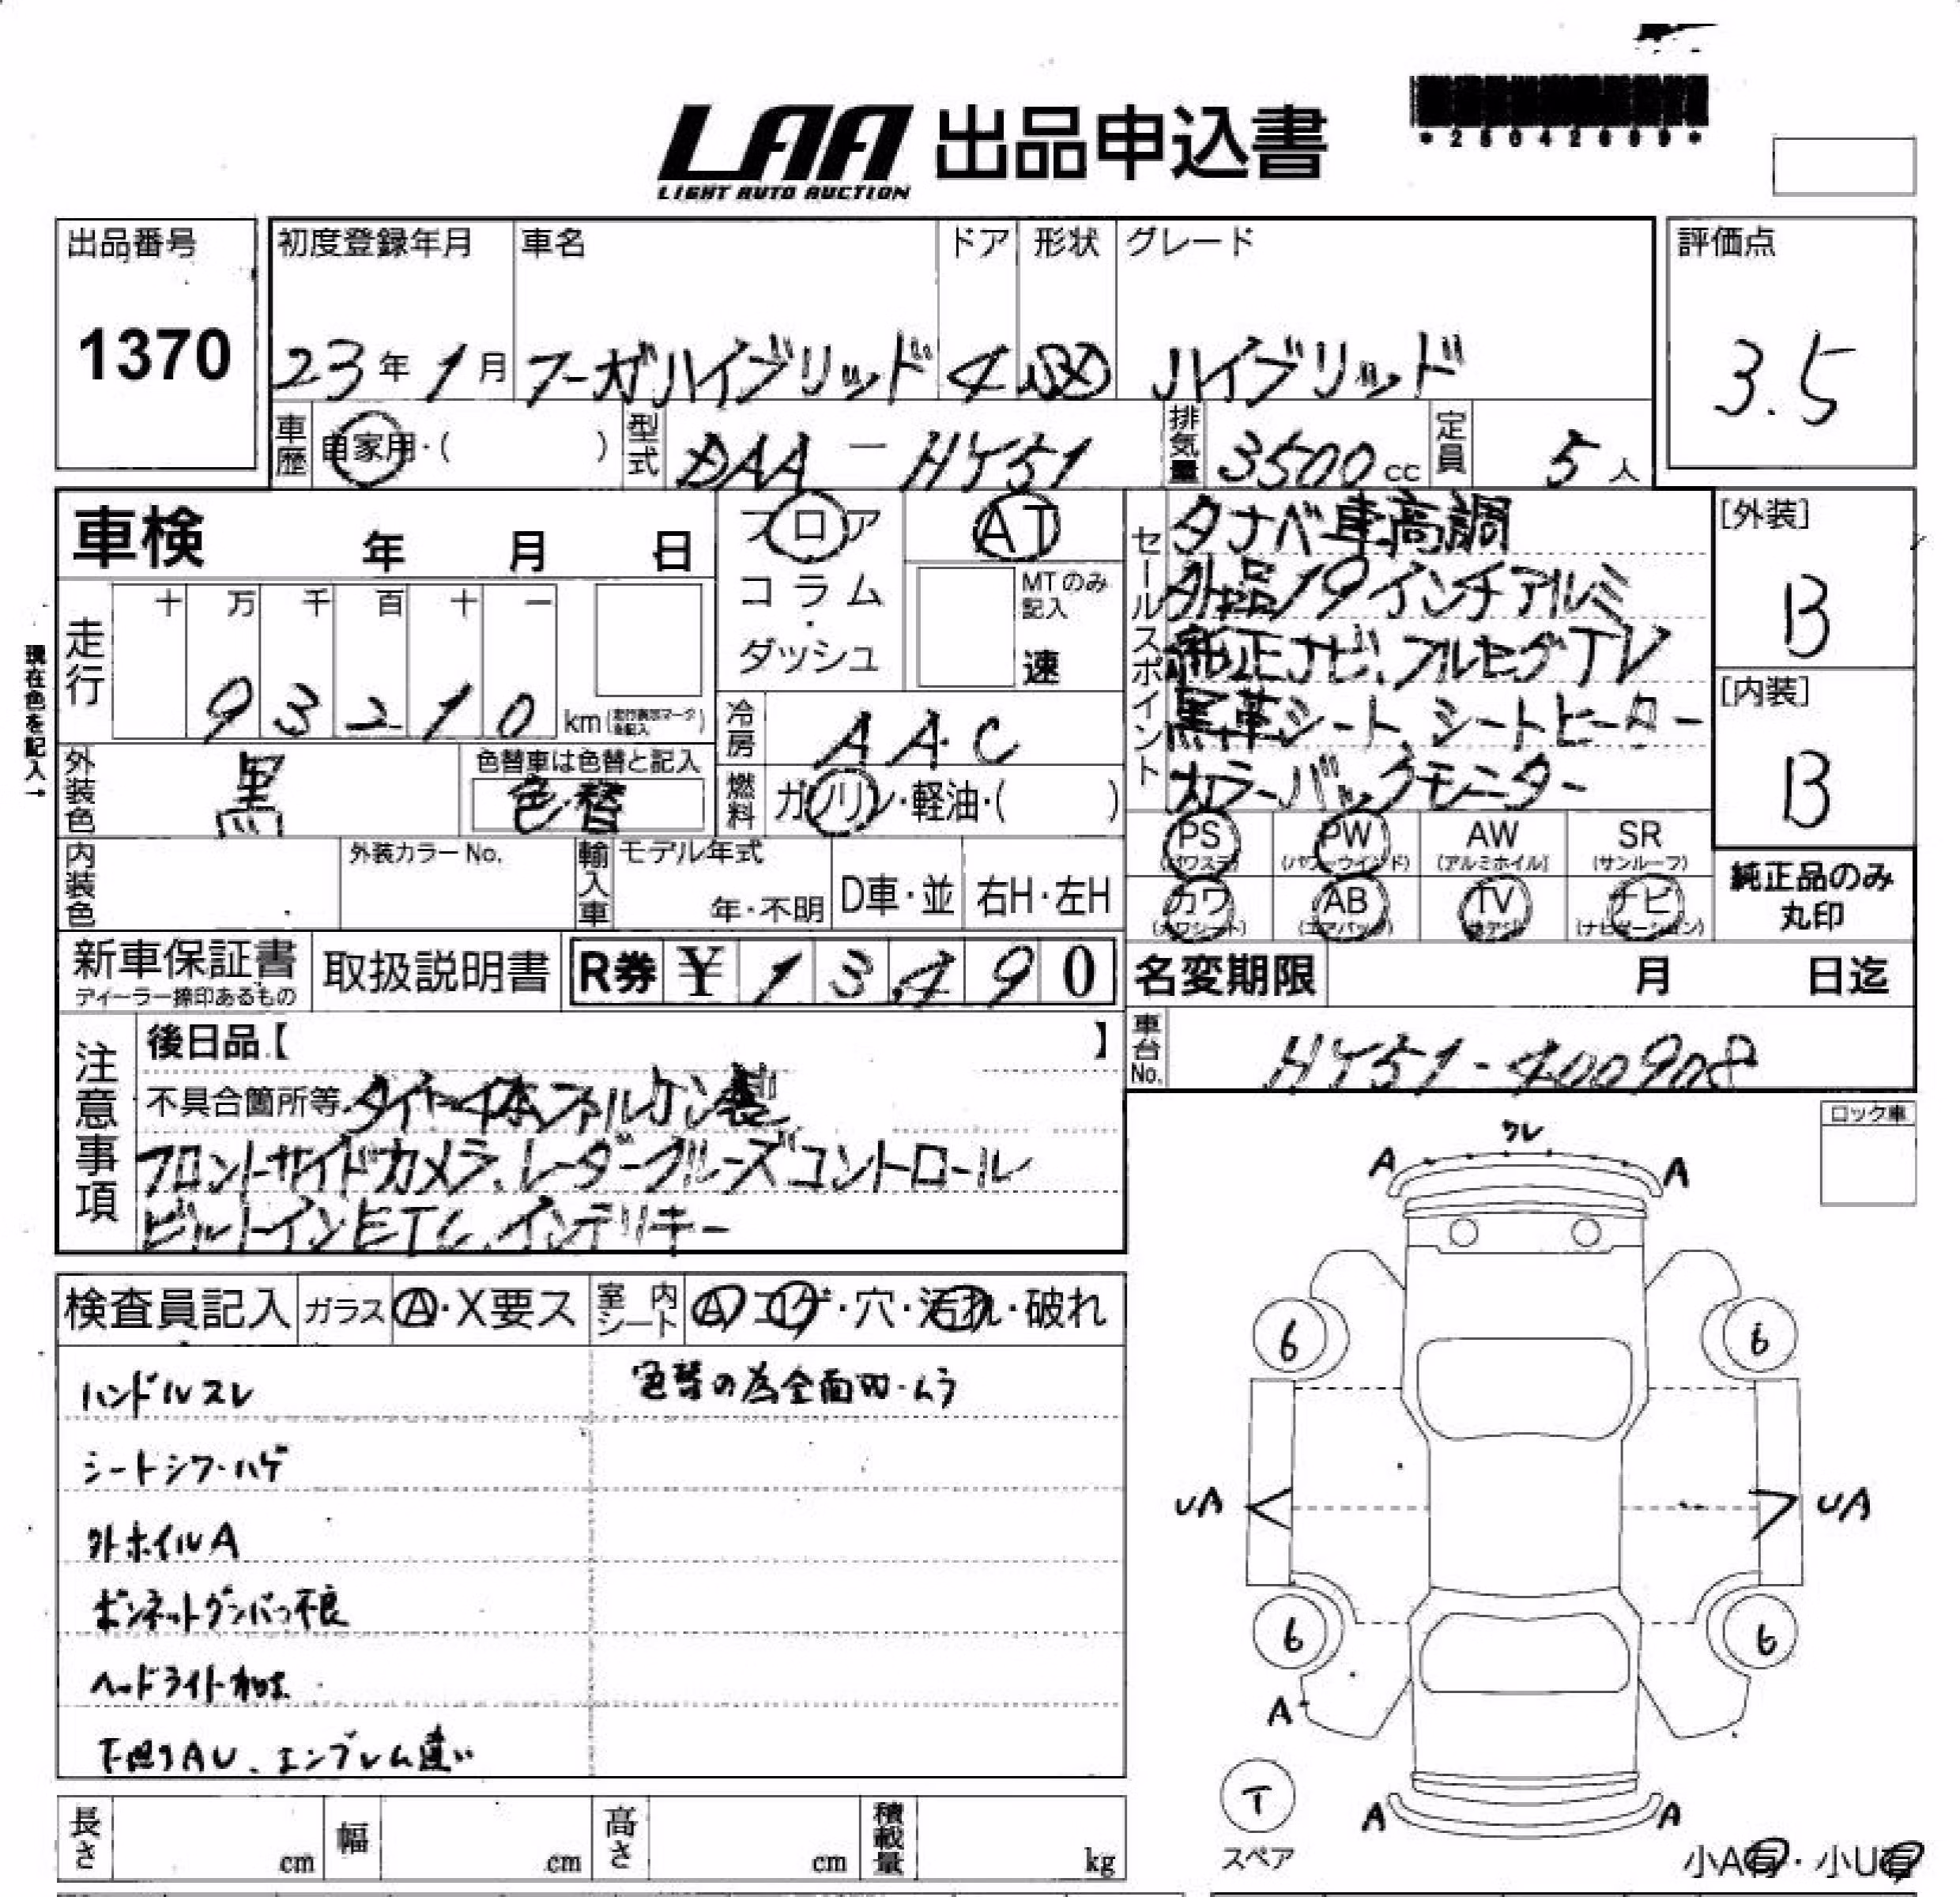 LAA 出品申込書
LIGHT AUTO AUCTION
出品番号 初度登録年月 車名 ドア 形状 グレード 評価点
1370 23年1月 フーガハイブリッド 4 SD ハイブリッド 3.5
車歴 自家用・( ) 型式 DAA-HY51 排気量 3500cc 定員 5人
車検 年 月 日
フロア AT
コラム・
ダッシュ
MTのみ記入
速
走行 十 万 千 百 十 一
93210 km
現在色を記入→
外装色 黒 色替車は色替と記入
色替
冷房 AAC
燃料 ガソリン・軽油・( )
内装色 外装カラーNo. 輸入車 モデル年式
年・不明 D車・並 右H・左H
セールスポイント
タナベ車高調
外品19インチアルミ
純正ナビ、フルセグTV
黒革シート、シートヒーター
カラーバックモニター
[外装]
B
[内装]
B
PS PW AW SR
(パワステ) (パワーウインド) (アルミホイル) (サンルーフ)
カワ AB TV ナビ
(カワシート) (エアバッグ) (ナビゲーション)
純正品のみ
丸印
新車保証書 取扱説明書 R券 ¥ 13,490
ディーラー捺印あるもの
名変期限 月 日迄
車台No. HY51-400908
注意事項
後日品【 】
不具合箇所等 タイヤ4本ファルケン製
フロントサイドカメラ、レーダークルーズコントロール
ビルトインETC、インテリキー
ロック車
検査員記入 ガラス A・X要ス 室内シート A コゲ・穴・汚れ・破れ
ハンドルスレ 色替の為全面肌・ムラ
シートシワ・ハゲ
外ホイルA
ボンネットダンパー不良
ヘッドライト
下廻りAU、エンブレム違い
ワレ
A A
6 6
UA UA
6 6
A
T
スペア
A A
小A有・小U有
長さ cm 幅 cm 高さ cm 積載量 kg